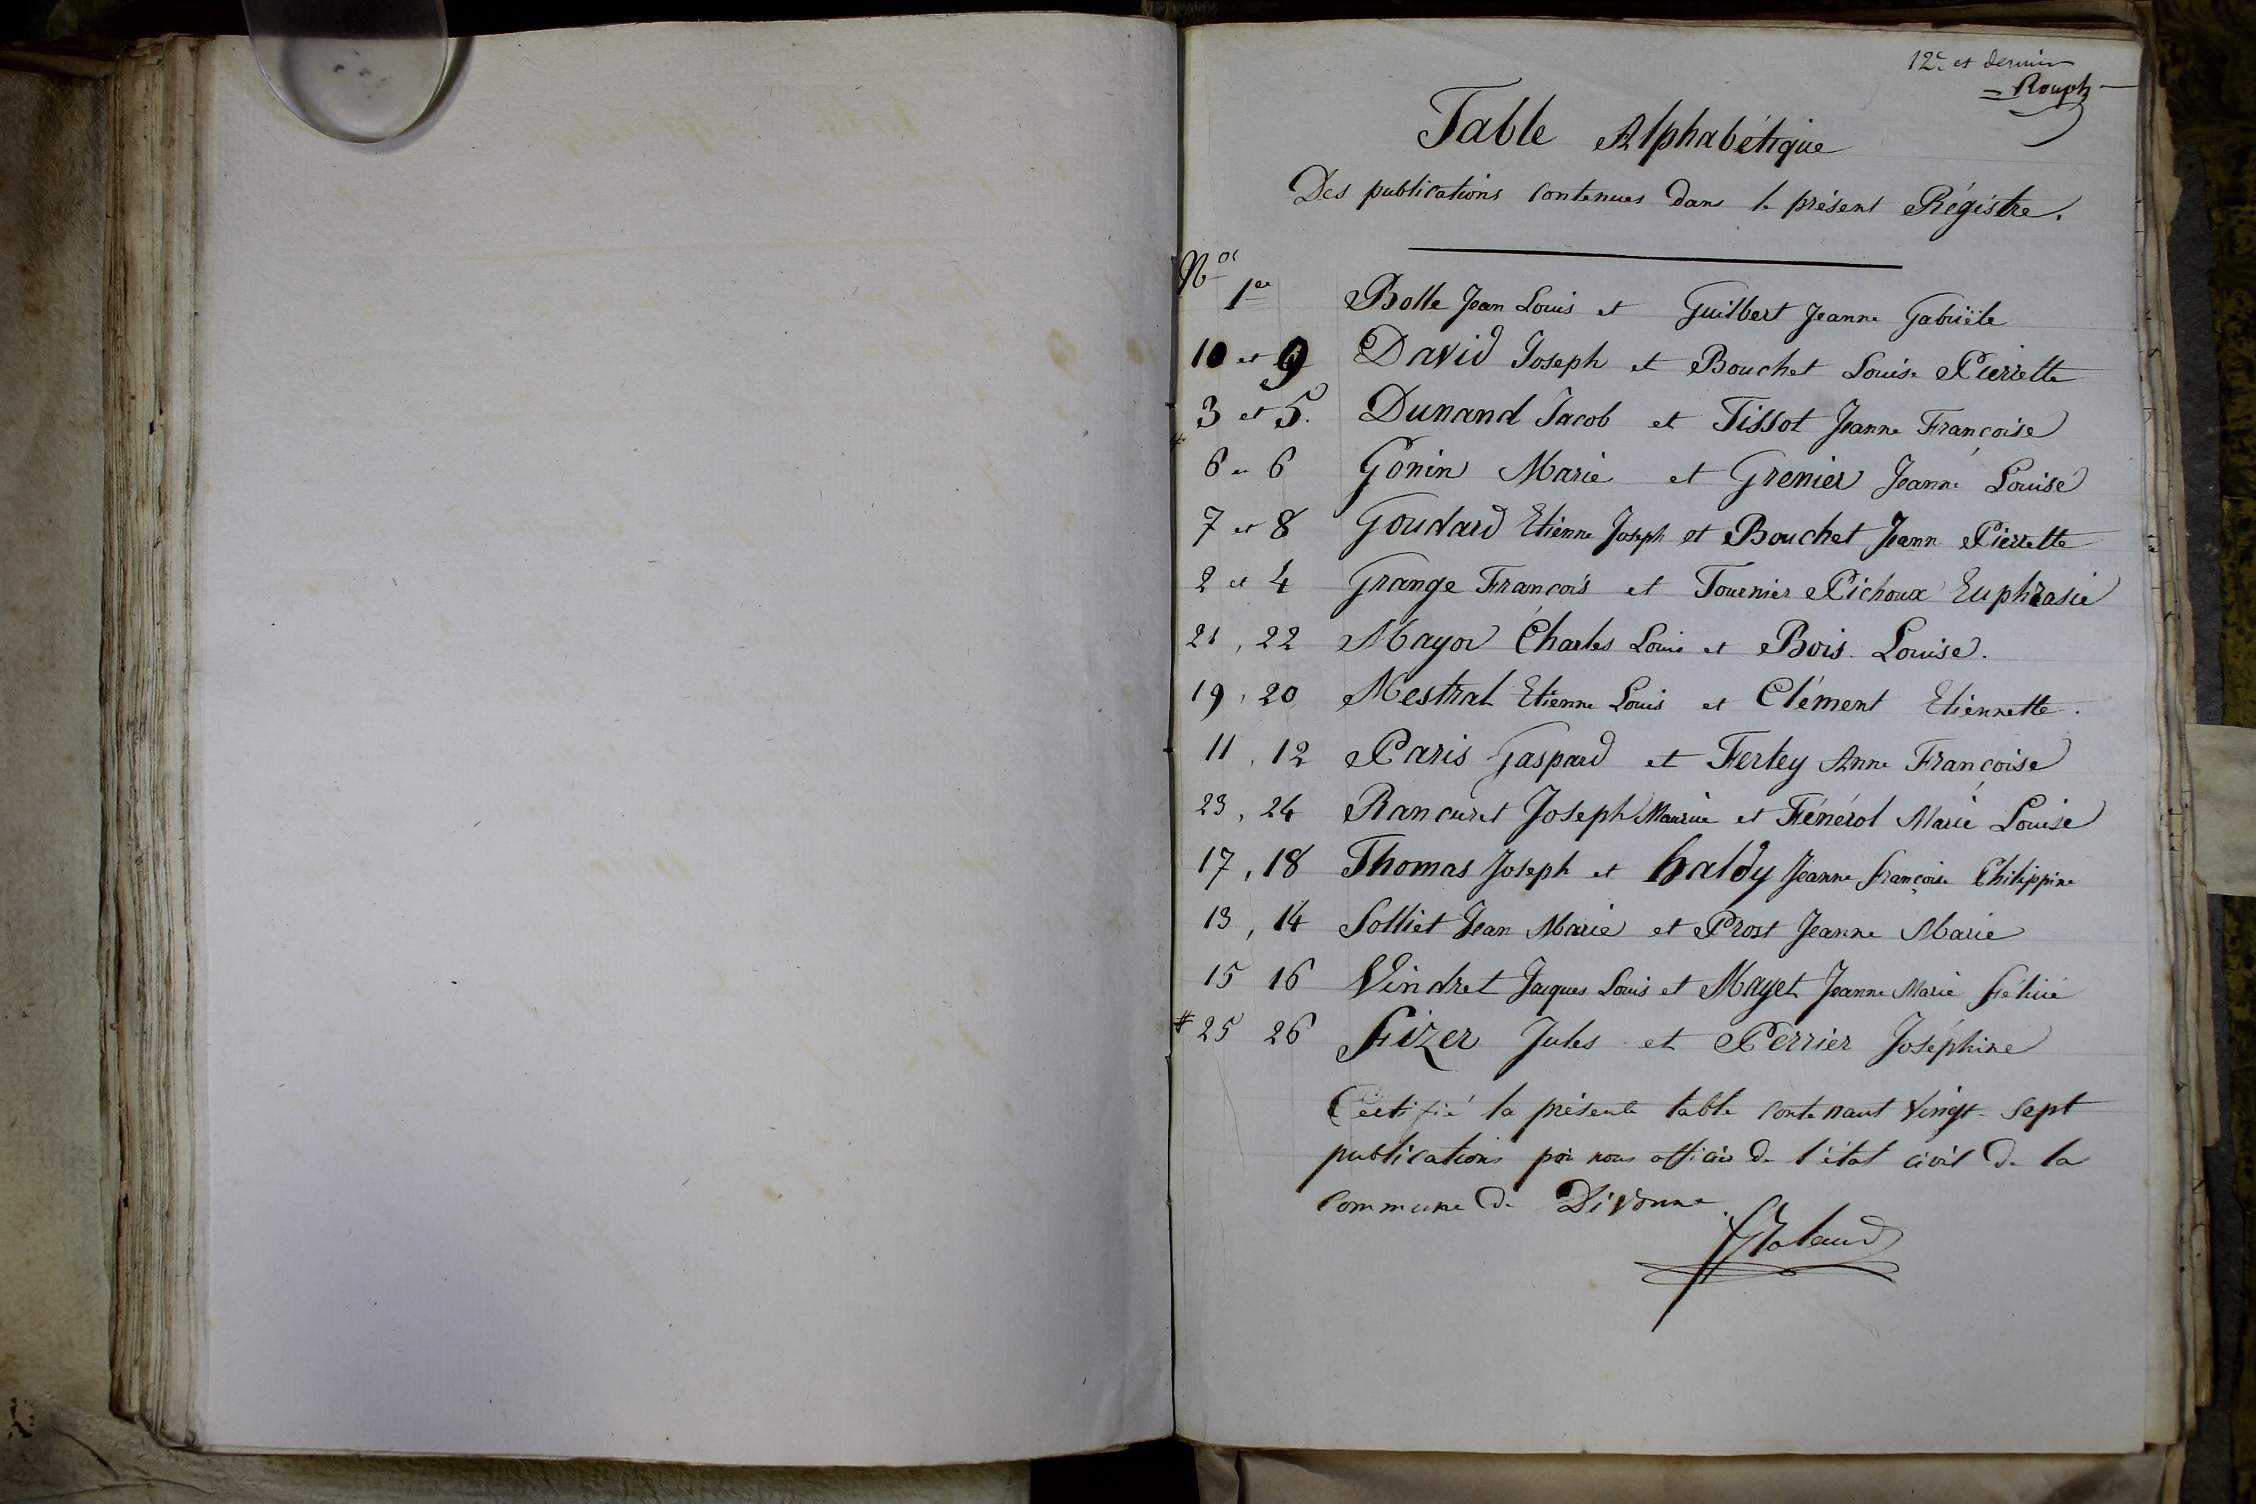 12e et dernier
Rouph
Table Alphabétique
Des publications contenues dans le présent Régistre.
Nos
1er Bolle Jean Louis et Guilbert Jeanne Gabriële
10 et 9 David Joseph et Bouchet Louise Pierrette
3 et 5. Dunand Jacob et Tissot Jeanne Françoise
6 et 6 Gonin Marie et Grenier Jeanne Louise
7 et 8 Goudard Etienne Joseph et Bouchet Jeanne Pierrette
2 et 4 Grange François et Tournier Pichoux Euphrasie
21, 22 Mayor Charles Louis et Bois Louise.
19, 20 Mestral Etienne Louis et Clément Etiennette.
11, 12 Paris Gaspard et Fertey Anne Françoise
23, 24 Rancuret Joseph Maurice et Fénérol Marie Louise
17, 18 Thomas Joseph et haldy Jeanne françoise Philippine
13, 14 Solliet Jean Marie et Prost Jeanne Marie
15 16 Vindret Jacques Louis et Mayet Jeanne Marie Félicie
# 25 26 Fizer Jules et Perrier Joséphine
Certifié la présente table contenant vingt-sept
publications par nous officier de l'état civil de la
commune de Divonne.